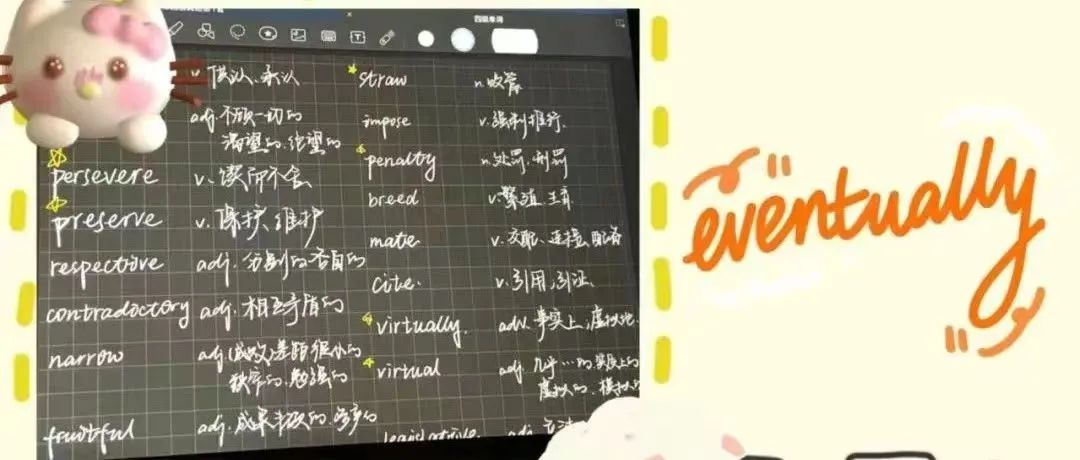 四级单词
v. 供认、承认
adj. 不顾一切的
渴望的、绝望的
persevere v. 锲而不舍
preserve v. 保护、维护
respective adj. 分别的、各自的
contradoctory adj. 相互矛盾的
narrow adj. (成败)差距很小的
狭窄的、勉强的
fruitful adj. 成果丰硕的、多产的
straw n. 吸管
impose v. 强制推行
penalty n. 处罚、刑罚
breed v. 繁殖、生育
mate v. 交配、连接、配备
cite. v. 引用、引证
virtually. adv. 事实上、虚拟地
virtual adj. 几乎…的、实际上的
虚拟的、模拟的
legislative. adj. 立法
"eventually"